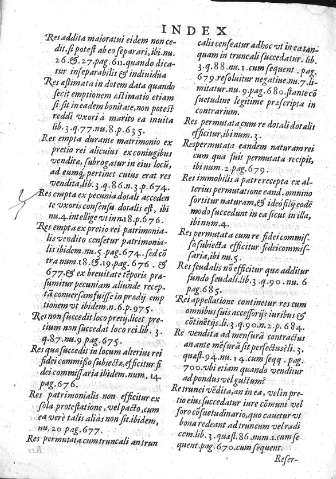 INDEX
Res addita maioratui eidem non cedit, si potest ab eo separari, ibi nu.
26. & 27. pag. 611. quando dicatur inseparabilis & indiuidua
Res æstimata in dotem data quando
fecit emptionem æstimatio etiam
si sit in eadem bonitate, non potest
reddi vxori à marito ea inuita
lib. 3. q. 77. nu. 8. p. 635.
Res empta durante matrimonio ex
pretio rei alicuius ex coniugibus
vendita, subrogatur in eius locũ,
ad eumq; pertinet cuius erat res
vendita, lib. 3. q. 86. n. 3. p. 674.
Res empta ex pecunia dotali accedente vxoris consensu dotalis est, ibi
nu. 4. intellige vt in n. 18. p. 676.
Res empta ex pretio rei patrimonialis vendito censetur patrimonialis ibidem nu. 5. pag. 674. sed cõtra num. 8. & 19. pag. 676. &
677. & ex breuitate tẽporis præsumitur pecuniam aliunde receptã conuersam fuisse in prodij emptionem vt ibidem n. 6. p. 975.
Res non succedit loco pretij, licet pretium non succedat loco rei. lib. 3.
q. 87. nu. 9. pag. 675.
Res quæ succedit in locum alterius rei
fidei commisso subiectæ, efficitur fidei commissaria ibidem, num. 14.
pag. 676.
Res patrimonialis non efficitur ex
sola protestatione, vel pacto, cum
ea verè talis aliàs non sit, ibidem,
nu. 20. pag. 677.
Res permutata cum truncali an truncalis censeatur ad hoc vt in ea tanquam in truncali succedatur. lib.
3. q. 88. nu. 1. cum sequent. pag.
679. resoluitur negatiue. nu. 7. limitatur. nu. 9. pag. 680. stante cõsuetudine legitime præscripta in
contrarium.
Res permutata cum re dotali dotalis
efficitur, ibi num. 3.
Res permutata eandem naturam rei
cum qua fuit permutata recipit,
ibi num. 2. pag. 679.
Res immobilis à patre recepta ex alterius permutatione eand. omnino
sortitur naturam, & ideo filij eodẽ
modo succedunt in ea sicut in illa,
ibi num. 4.
Res permutata cum re fidei commisso subiecta efficitur fidei commissaria, ibi nu. 5.
Res feudalis nõ efficitur quæ additur
fundo feudali. lib. 3. q. 90. nu. 6
pag. 685.
Rei appellatione continetur res cum
omnibus suis accessorijs iuribus &
cõtinẽtijs. lib. 3. q. 90. n. 2. p. 684.
Re vendita ad mensurã contractus
an ante mẽsurã sit perfectus lib. 3.
quæst. 94. nu. 14. cum seqq. pag.
700. vbi etiam quando venditur
ad pondus vel gustum?
Retractus rei vẽdita, an in ea, vel in pretio eius succedatur iure cõmuni vel
foro cõsuetudinario, quo cauetur vt
bona redeant ad truncum vel radicem. lib. 3. quæst. 86. num. 2. cum sequent. pag. 670. cum sequent.
Refer-